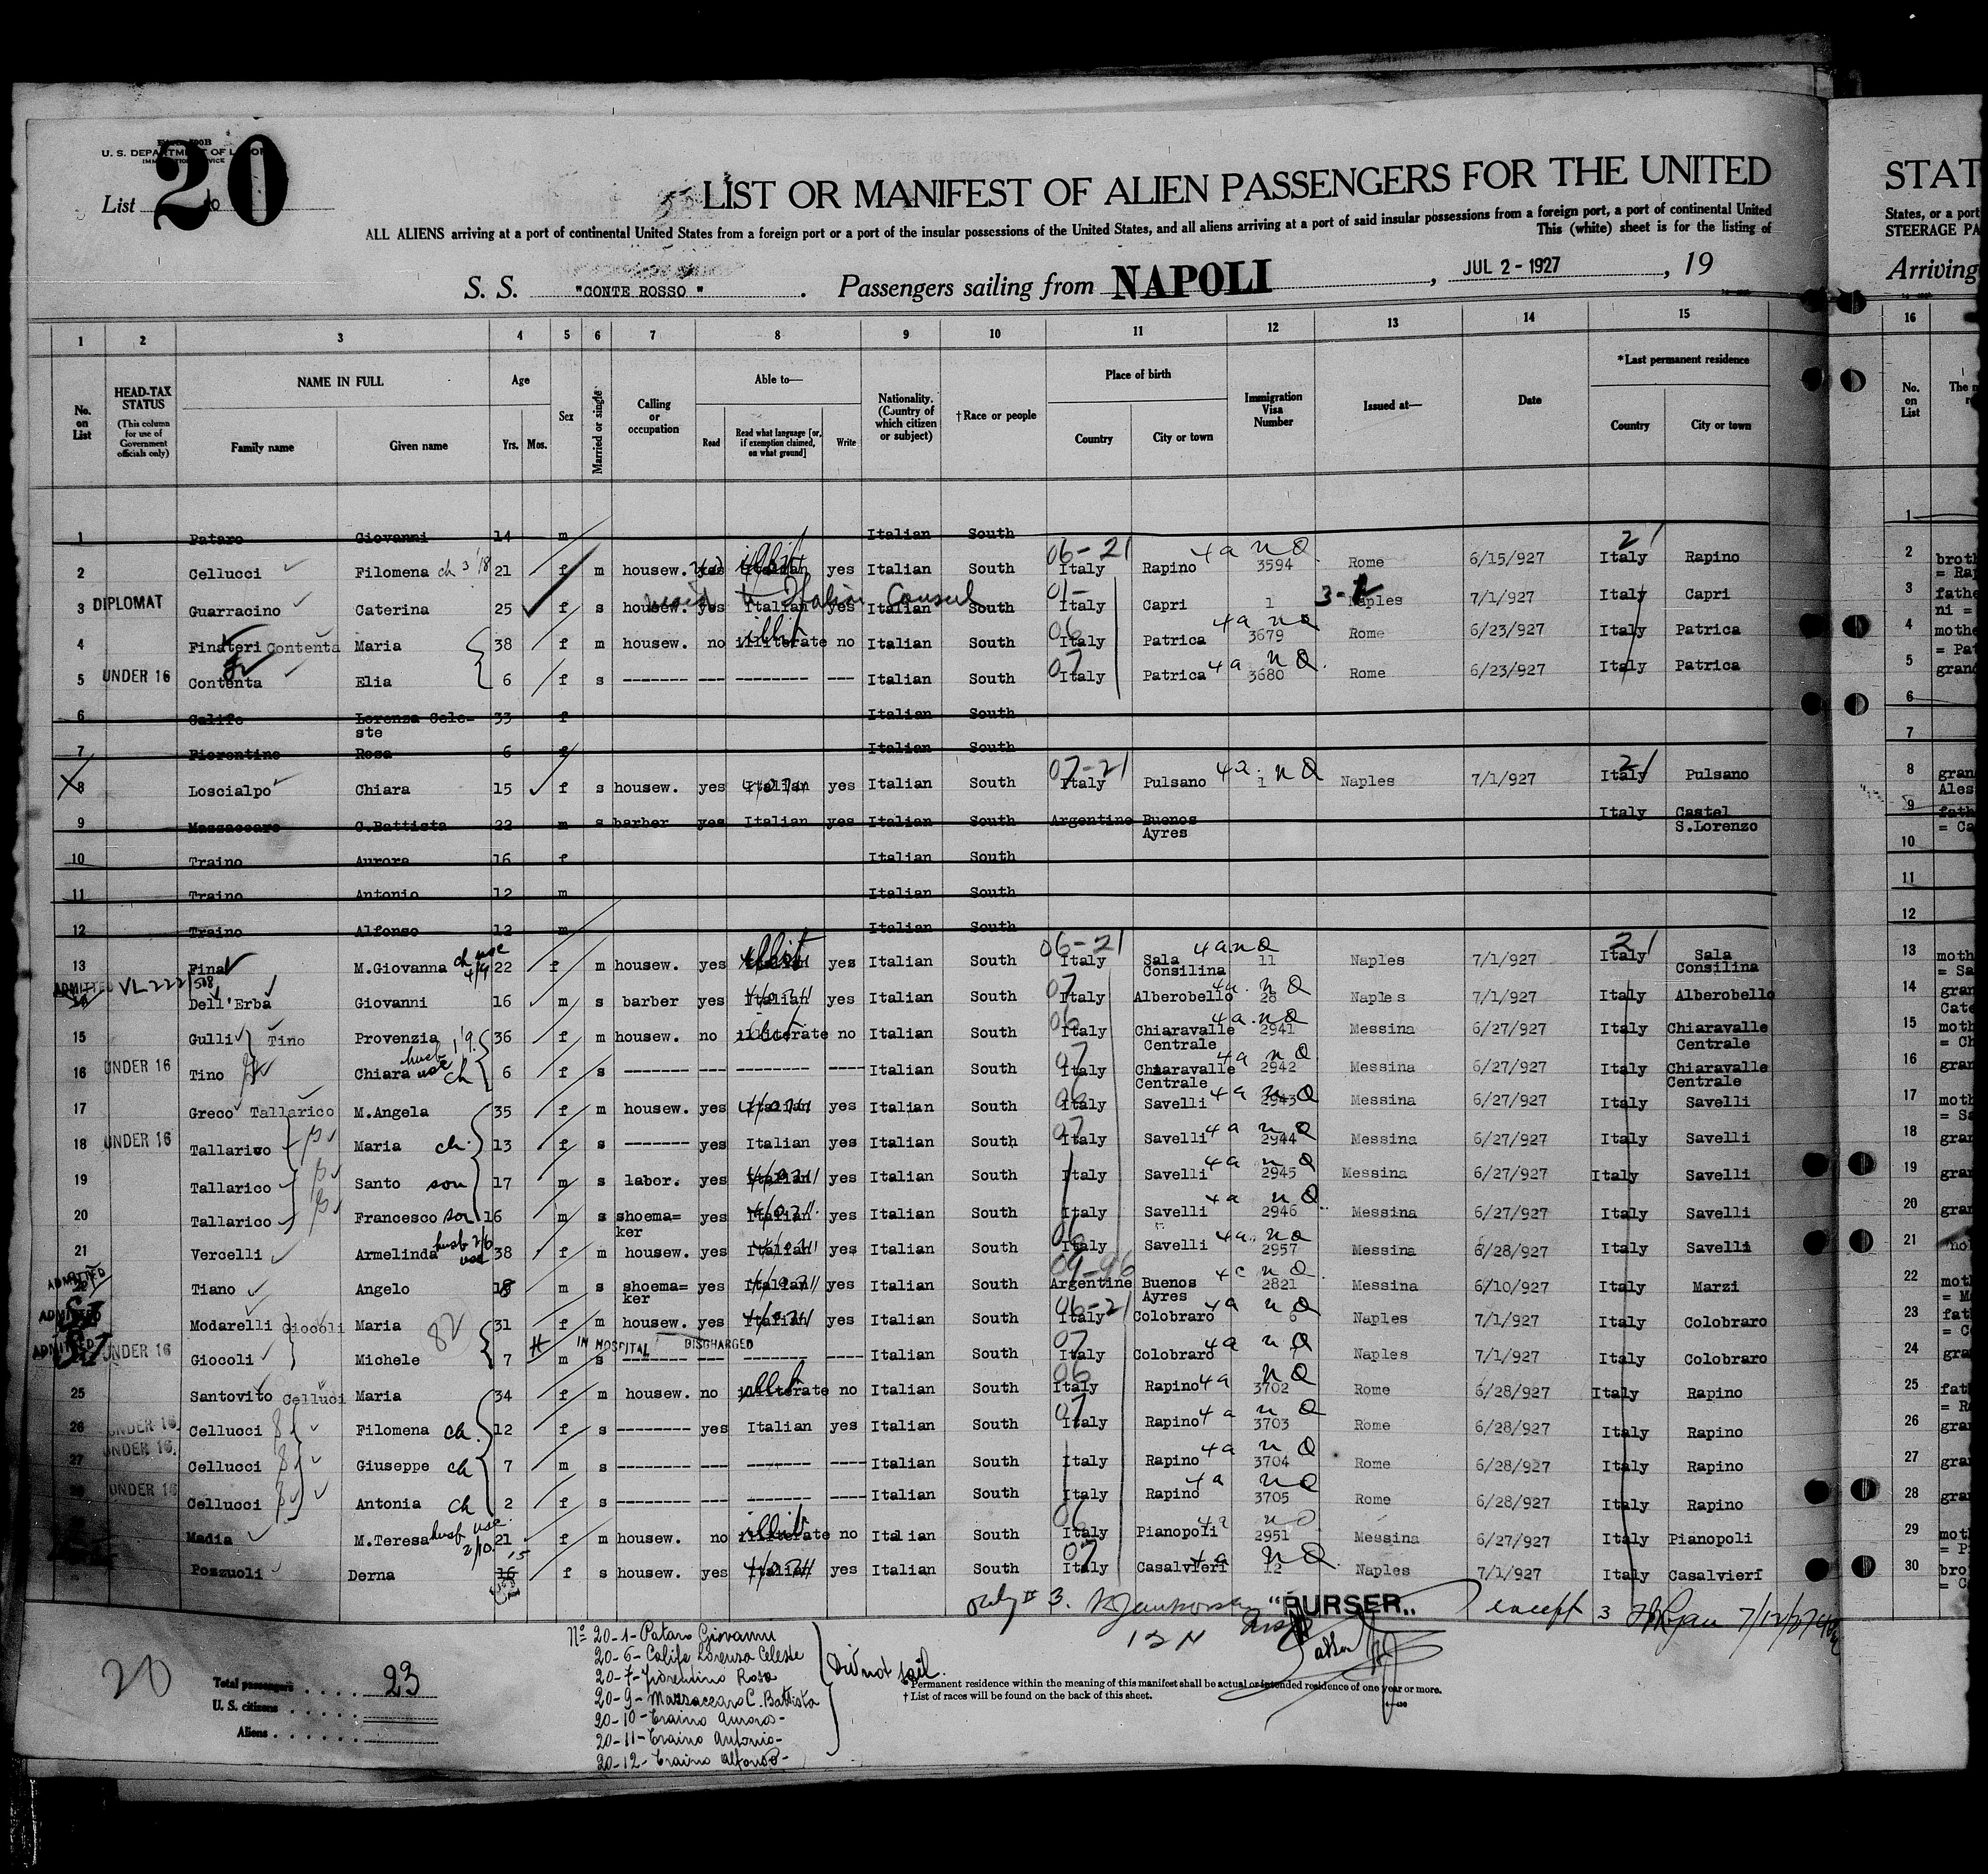 20
U. S. DEPARTMENT OF LABOR
List
LIST OR MANIFEST OF ALIEN PASSENGERS FOR THE UNITED
ALL ALIENS arriving at a port of continental United States from a foreign port or a port of the insular possessions of the United States, and all aliens arriving at a port of said insular possessions from a foreign port, a port of continental United
This (white) sheet is for the listing of
S. S. "CONTE ROSSO" . Passengers sailing from NAPOLI , JUL 2 - 1927 , 19
STAT
States, or a port
STEERAGE PA
Arriving
1 2 3 4 5 6 7 8 9 10 11 12 13 14 15 16
No. on List
HEAD-TAX STATUS
(This column for use of Government officials only)
NAME IN FULL
Family name
Given name
Age
Yrs. Mos.
Sex
Married or single
Calling or occupation
Able to—
Read
Read what language [or, if exemption claimed, on what ground]
Write
Nationality. (Country of which citizen or subject)
†Race or people
Place of birth
Country
City or town
Immigration Visa Number
Issued at—
Date
*Last permanent residence
Country
City or town
No. on List
1 Pataro Giovanni 14 m Italian South
2 Cellucci Filomena ch 21 f m housew. yes Italian illit yes Italian South 06-21 Italy Rapino 4a nQ 3594 Rome 6/15/927 21 Italy Rapino
3 DIPLOMAT Guarracino Caterina 25 f s housew. yes Italian yes Italian South Italy Capri 1 Naples 7/1/927 Italy Capri
maid to Italian Consul
4 Finateri Contenta Maria 38 f m housew. no illiterate illit no Italian South 06 Italy Patrica 4a nQ 3679 Rome 6/23/927 Italy Patrica
5 UNDER 16 Contenta Elia 6 f s -------- --- -------- --- Italian South 07 Italy Patrica 4a nQ 3680 Rome 6/23/927 Italy Patrica
6 Califo Lorenza Cele=ste 33 f Italian South
7 Fiorentino Rosa 6 f Italian South
8 Loscialpo Chiara 15 f s housew. yes Italian yes Italian South 07-21 Italy Pulsano 4a nQ 1 Naples 7/1/927 21 Italy Pulsano
9 Mazzaccaro C.Battista 22 m s barber yes Italian yes Italian South Argentine Buenos Ayres Italy Castel S.Lorenzo
10 Traino Aurora 16 f Italian South
11 Traino Antonio 12 m Italian South
12 Traino Alfonso 12 m Italian South
13 Fina M.Giovanna 22 f m housew. yes Italian yes Italian South 06-21 Italy Sala Consilina 4a nQ 11 Naples 7/1/927 21 Italy Sala Consilina
ADMITTED Dell'Erba Giovanni 16 m s barber yes Italian yes Italian South 07 Italy Alberobello 4a nQ 28 Naples 7/1/927 Italy Alberobello
15 Gulli Tino Provenzia 36 f m housew. no illiterate no Italian South 06 Italy Chiaravalle Centrale 4a nQ 2941 Messina 6/27/927 Italy Chiaravalle Centrale
16 UNDER 16 Tino Chiara ch 6 f s -------- --- -------- ---- Italian South 07 Italy Chiaravalle Centrale 4a nQ 2942 Messina 6/27/927 Italy Chiaravalle Centrale
17 Greco Tallarico M.Angela 35 f m housew. yes Italian yes Italian South 06 Italy Savelli 4a nQ 2943 Messina 6/27/927 Italy Savelli
18 UNDER 16 Tallarico Maria ch. 13 f s -------- yes Italian yes Italian South 07 Italy Savelli 4a nQ 2944 Messina 6/27/927 Italy Savelli
19 Tallarico Santo son 17 m s labor. yes Italian yes Italian South Italy Savelli 4a nQ 2945 Messina 6/27/927 Italy Savelli
20 Tallarico Francesco son 16 m s shoema=ker yes Italian yes Italian South Italy Savelli 4a nQ 2946 Messina 6/27/927 Italy Savelli
21 Vercelli Armelinda 38 f m housew. yes Italian yes Italian South 06 Italy Savelli 4a nQ 2957 Messina 6/28/927 Italy Savelli
ADMITTED Tiano Angelo m s shoema=ker yes Italian yes Italian South Argentine Buenos Ayres 4c nQ 2821 Messina 6/10/927 Italy Marzi
ADMITTED Modarelli Giocoli Maria 31 f m housew. yes Italian yes Italian South 06-21 Italy Colobraro 4a nQ 6 Naples 7/1/927 Italy Colobraro
IN HOSPITAL DISCHARGED
ADMITTED UNDER 16 Giocoli Michele 7 m s -------- --- -------- ---- Italian South 07 Italy Colobraro 4a nQ Naples 7/1/927 Italy Colobraro
25 Santovito Celluci Maria 34 f m housew. no illiterate illit no Italian South 06 Italy Rapino 4a nQ 3702 Rome 6/28/927 Italy Rapino
26 UNDER 16 Cellucci Filomena ch. 12 f s -------- yes Italian yes Italian South 07 Italy Rapino 4a nQ 3703 Rome 6/28/927 Italy Rapino
27 UNDER 16 Cellucci Giuseppe ch 7 m s -------- --- ------- ---- Italian South Italy Rapino 4a nQ 3704 Rome 6/28/927 Italy Rapino
UNDER 16 Cellucci Antonia ch 2 f s -------- --- ------- ---- Italian South Italy Rapino 4a nQ 3705 Rome 6/28/927 Italy Rapino
Madia M.Teresa 21 f m housew. no illiterate illit no Italian South 06 Italy Pianopoli nQ 2951 Messina 6/27/927 Italy Pianopoli
Pozzuoli Derna 16 15 f s housew. yes Italian yes Italian South 07 Italy Casalvieri 4a nQ 12 Naples 7/1/927 Italy Casalvieri
"PURSER"
except 3
Nº 20-1-Pataro Giovanni
20-6-Califo Lorenza Celeste
20-7-Fiorentino Rosa
20-9-Mazzaccaro C. Battista
20-10-Traino Aurora-
20-11-Traino Antonio-
20-12-Traino Alfonso-
Did not sail.
20
Total passengers . . . . 23
U. S. citizens . . . . . .
Aliens . . . . . .
*Permanent residence within the meaning of this manifest shall be actual or intended residence of one year or more.
†List of races will be found on the back of this sheet.